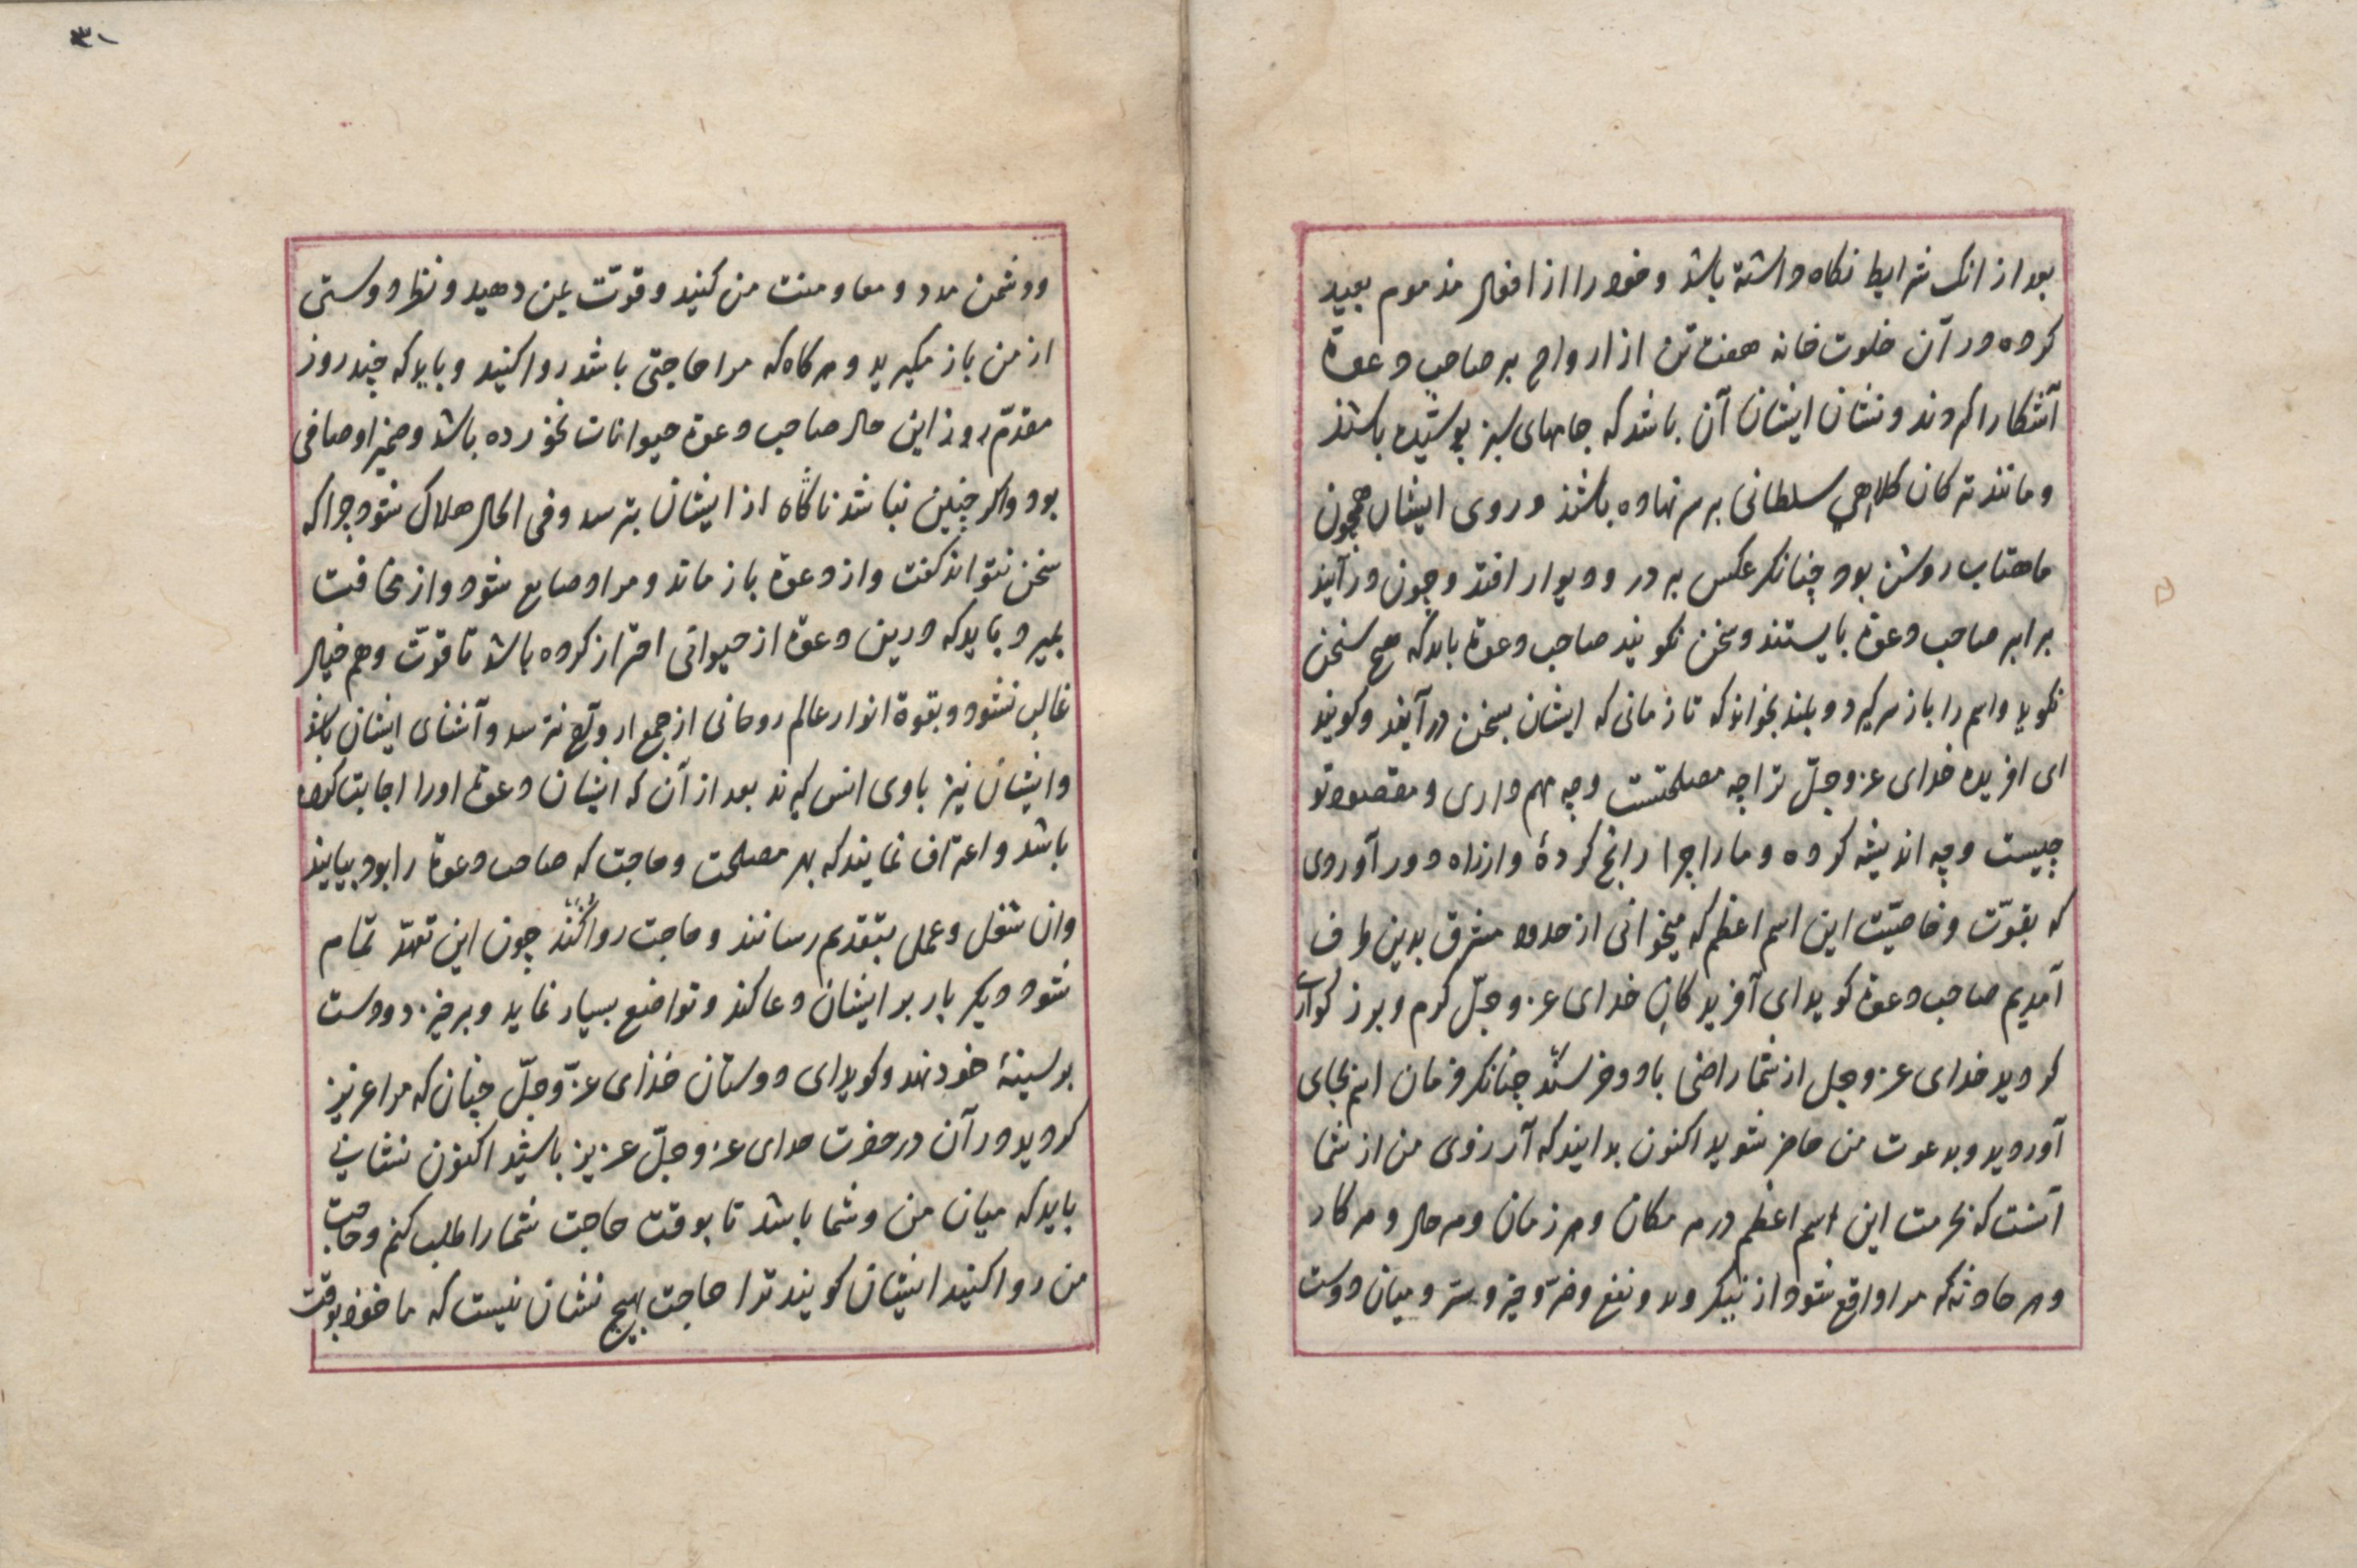 بعد از انک شرایط نکاه داشته باشد و خود را از افعال مذموم بعید
کرده در آن خلوت خانه هفت تن از ارواح بر صاحب دعوة
آشکارا کردند و نشان ایشان آن باشد که جامهای سبز پوشیده باشند
و مانند ترکان کلاهی سلطانی بر سر نهاده باشند و روی ایشان همچون
ماهتاب روشن بود چنانکه عکس بر در و دیوار افتد و چون درآیند
برابر صاحب دعوة بایستند و سخن نکویند صاحب دعوة باید که هیچ سخن
نکوید و اسم را باز سر کیرد و بلند بخواند که تا زمانی که ایشان بسخن درآیند و کویند
ای افریده خدای عز و جلّ ترا چه مصلحتست و چه مهم داری و مقصود تو
چیست و چه اندیشه کرده و ما را چرا رانج کردهٔ و از راه دور آوردی
که بقوّت و خاصیّت این اسم اعظم که میخوانی از حدود مشرق بدین طرف
آمدیم صاحب دعوة کوید ای آفریدکان خدای عز و جلّ کرم و بزرکواری
کردید خدای عز و جل از شما راضی باد و خرسند چنانکه فرمان اسم بجای
آوردید و بدعوت من حاضر شوید اکنون بدانید که آرزوی من از شما
آنست که بحرمت این اسم اعظم در هر مکان و هر زمان و هر حال و هر کار
و هر حادثه که مرا واقع شود از نیک و بد و نفع و ضرّ و خیر و شر و میان دوست
و دشمن مدد و معاومنت من کنید و قوّت بمن دهید و نظر دوستی
از من باز مکیرید و هر کاه که مرا حاجتی باشد روا کنید و باید که چند روز
مقدّم روز این حال صاحب دعوة حیوانات نخورده باشد و ضمیر او صافی
بود و اکر چنین نباشد ناکاه از ایشان بترسد و فی الحال هلاک شود چرا که
سخن نتواند کفت و از دعوة باز ماند و مراد ضایع شود و از مخافت
بمیرد باید که درین دعوة از حیوانی احتراز کرده باشد تا قوّت وهم خیال
غالب نشود و بقوة انوار عالم روحانی از جمع ارواح نترسد و آشنای ایشان باشد
و ایشان نیز با وی انس کیرند بعد از آن که ایشان دعوة او را اجابت کرده
باشد و اعتراف نمایند که بهر مصلحت و حاجت که صاحب دعوة را بود بیایند
وان شغل و عمل بتقدیم رسانند و حاجت روا کنند چون این تعهّد تمام
شود دیکر بار بر ایشان دعا کند و تواضع بسیار نماید و برخیزد و دست
بر سینهٔ خود نهد و کوید ای دوستان خذای عزّ و جلّ چنان که مرا عزیز
کردید در آن در حضرت خدای عز و جلّ عزیز باشید اکنون نشانی
باید که میان من و شما باشد تا بوقت حاجت شما را طلب کنم و حاجت
من روا کنید ایشان کویند ترا حاجت بهیچ نشان نیست که ما خود بوقت